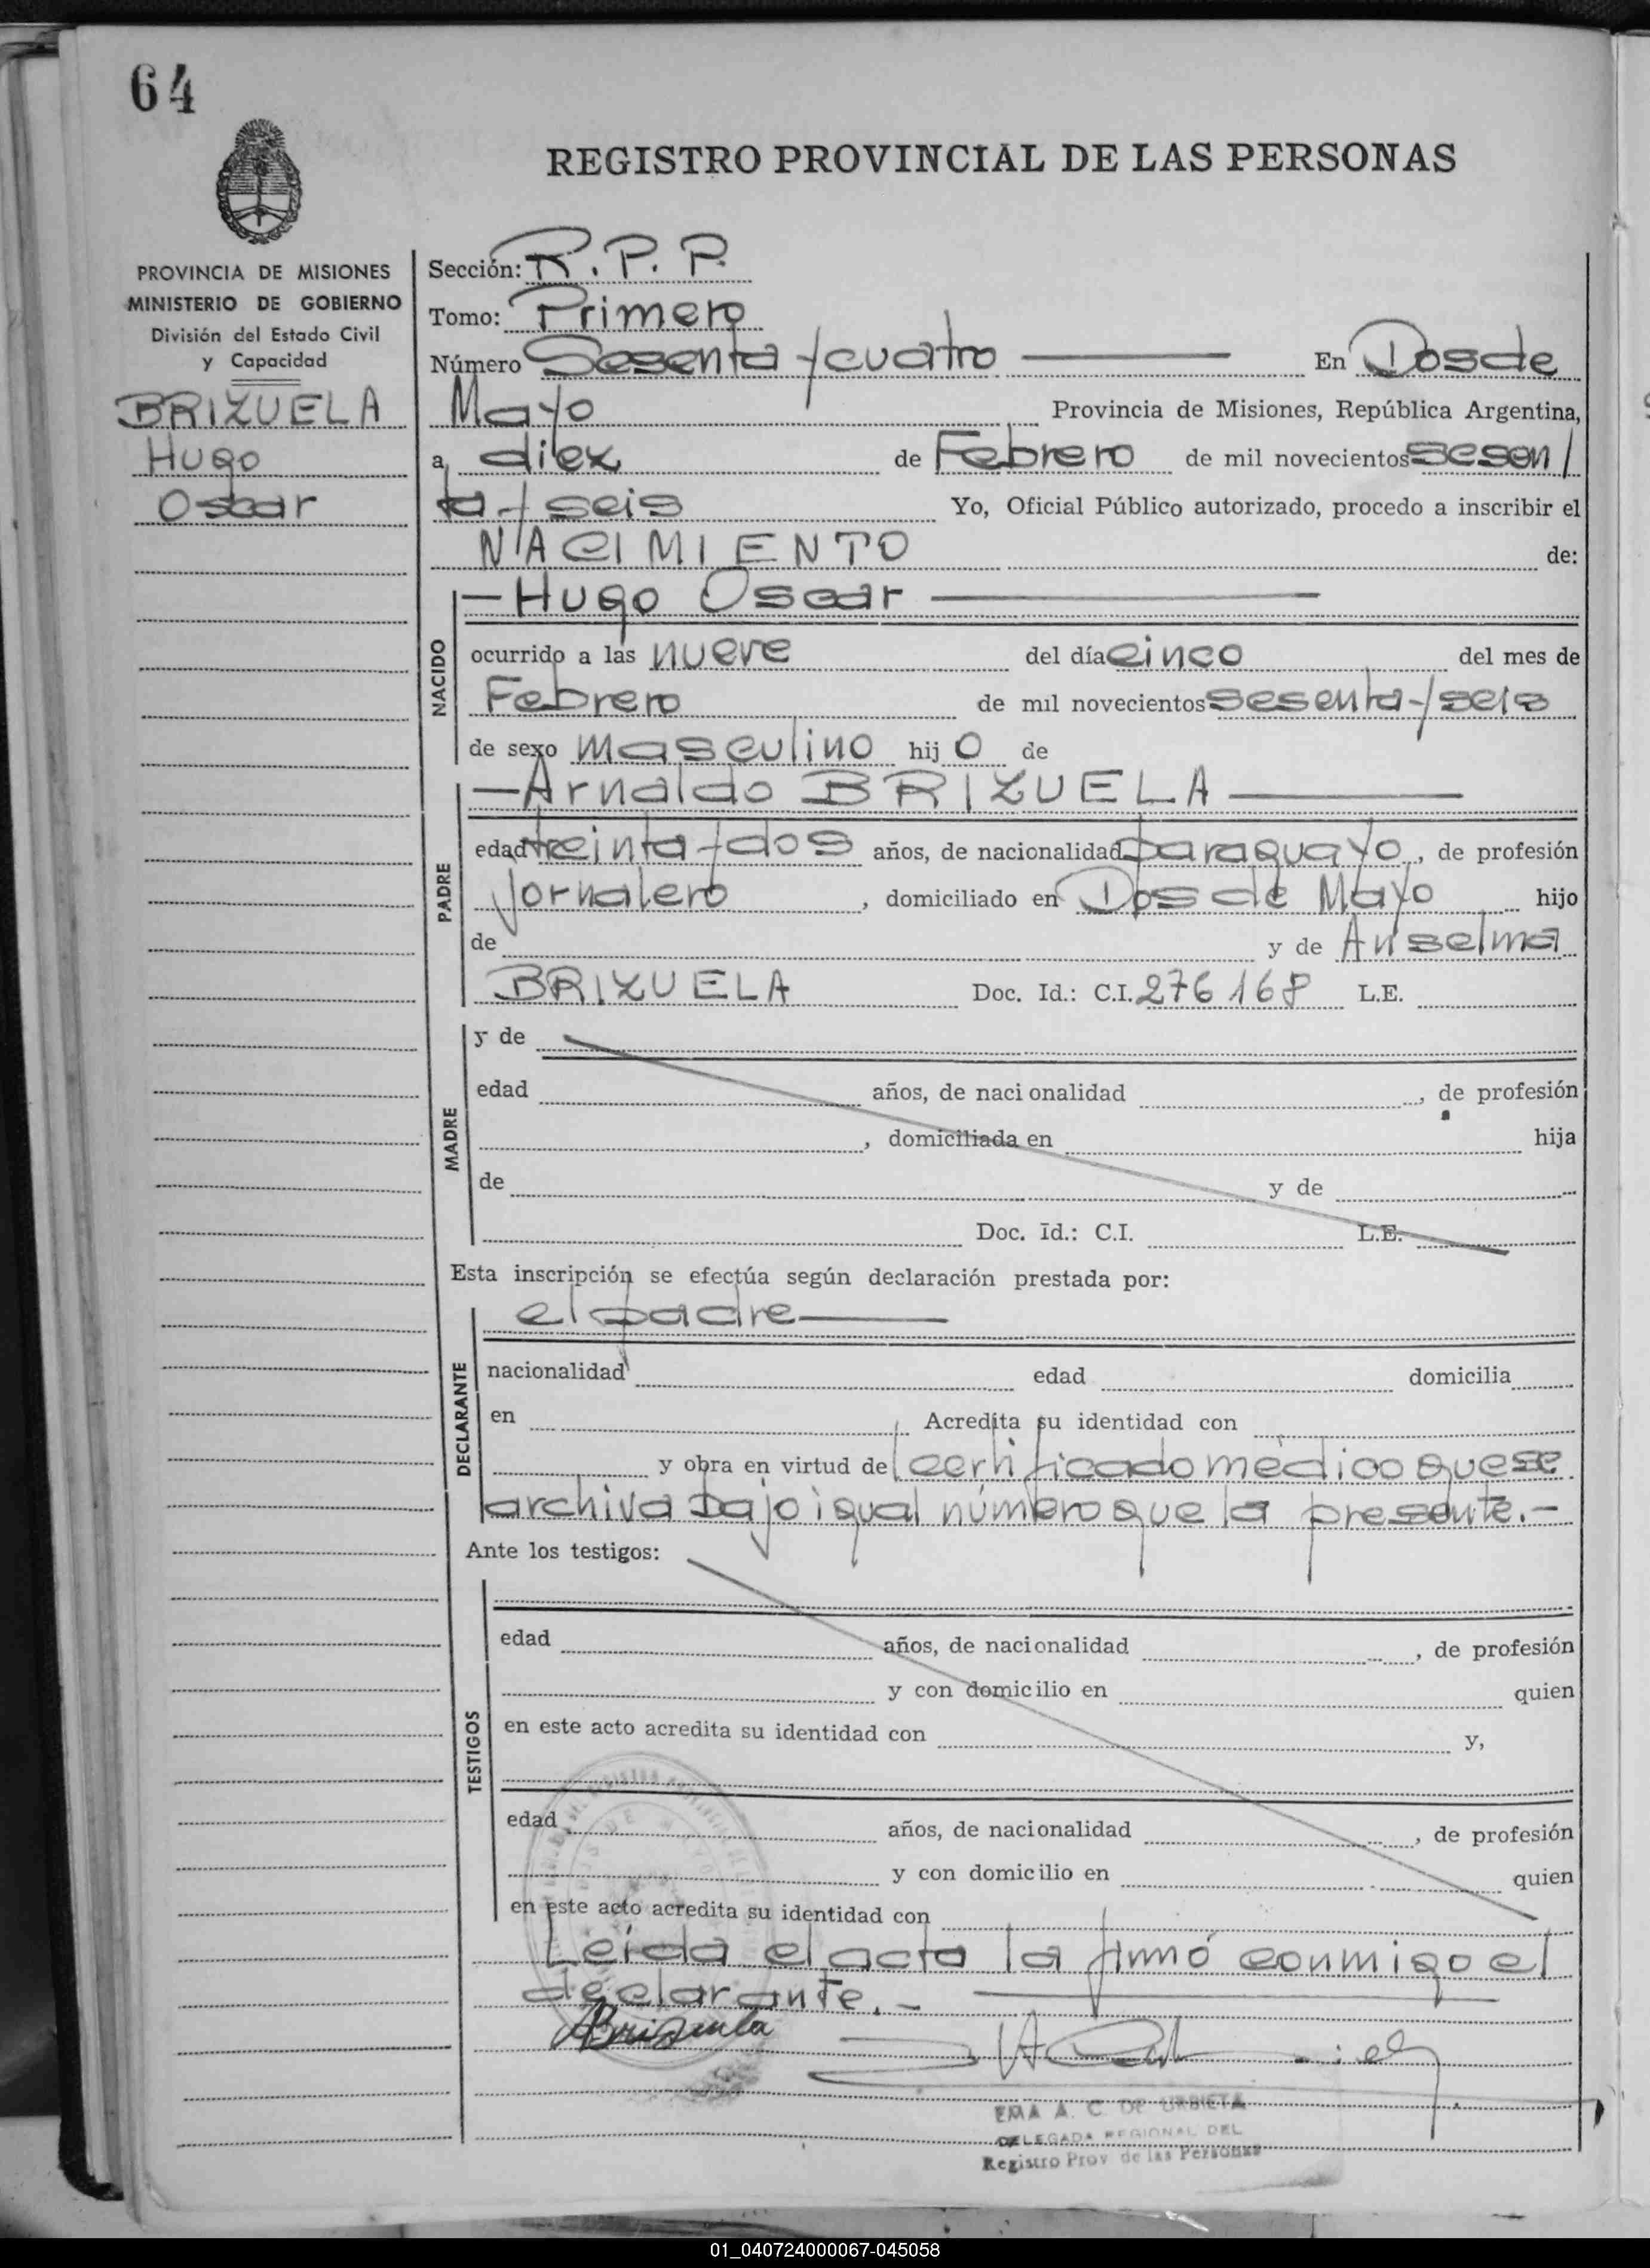 64
REGISTRO PROVINCIAL DE LAS PERSONAS
PROVINCIA DE MISIONES
MINISTERIO DE GOBIERNO
División del Estado Civil
y Capacidad
BRIZUELA
Hugo
Oscar
Sección: R. P. P.
Tomo: Primero
Número Sesenta y cuatro En Dos de
Mayo Provincia de Misiones, República Argentina,
a diez de Febrero de mil novecientos sesen/
ta y seis Yo, Oficial Público autorizado, procedo a inscribir el
NACIMIENTO de:
NACIDO
— Hugo Oscar —
ocurrido a las nueve del día cinco del mes de
Febrero de mil novecientos sesenta y seis
de sexo masculino hijo de
PADRE
— Arnaldo BRIZUELA —
edad treinta y dos años, de nacionalidad paraguayo, de profesión
jornalero, domiciliado en Dos de Mayo hijo
de y de Anselma
BRIZUELA Doc. Id.: C.I. 276168 L.E.
MADRE
y de
edad años, de nacionalidad , de profesión
, domiciliada en hija
de y de
Doc. Id.: C.I. L.E.
Esta inscripción se efectúa según declaración prestada por:
DECLARANTE
el padre —
nacionalidad edad domicilia
en Acredita su identidad con
y obra en virtud del certificado médico que se
archiva bajo igual número que la presente.-
Ante los testigos:
TESTIGOS
edad años, de nacionalidad , de profesión
y con domicilio en quien
en este acto acredita su identidad con y,
edad años, de nacionalidad , de profesión
y con domicilio en quien
en este acto acredita su identidad con
Leída el acta la firmó conmigo el
declarante.-
ABrizuela
EMA A. C. DE URBIETA
DELEGADA REGIONAL DEL
Registro Prov de las Personas
01_040724000067-045058